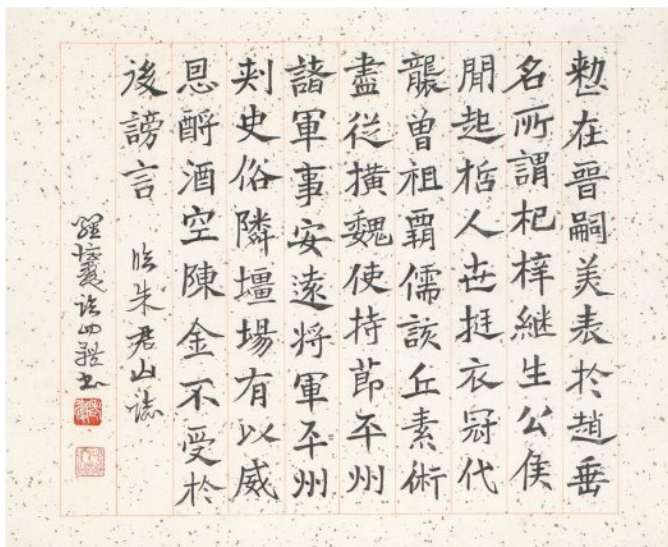 在晉嗣美表於趙垂
名所謂杞梓継生公侯
閒起悊人世挺衣冠代
襲曾祖霸儒該丘素術
盡從橫魏使持節平州
諸軍事安遠將軍平州
刺史俗隣壃場有以威
恩酹酒空陳金不受於
後謗言 臨朱君山誌